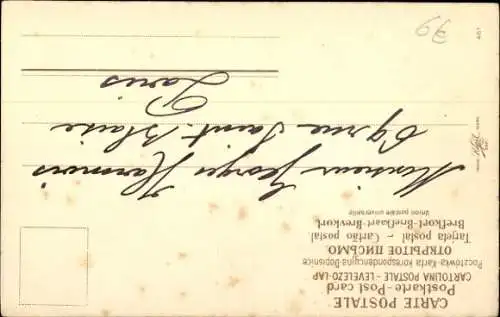 CARTE POSTALE
Postkarte - Post card
CARTOLINA POSTALE - LEVELEZŐ-LAP
Pocztówka - Karta korrespondencyjna - Dopisnice
ОТКРЫТОЕ ПИСЬМО
Tarjeta postal - Cartão postal
Brefkort - Briefkaart - Brevkort
Union postale universelle
Monsieur Georges Harmois
69 rue Saint Blaise
Paris